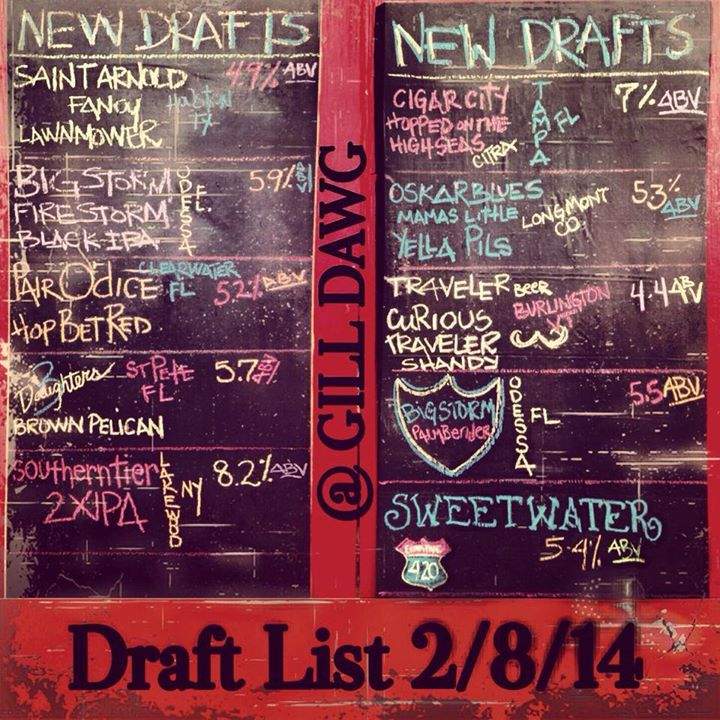 NEW DRAFTS
SAINT ARNOLD 4.9% ABV
FANCY HOUSTON
LAWNMOWER TX
BIG STORM ODESSA FL. 5.9% ABV
FIRESTORM
BLACK IPA
PAIR O DICE CLEARWATER FL 5.2% ABV
HOP BET RED
3 Daughters ST PETE FL 5.7%
BROWN PELICAN
Southerntier LAKEWOOD NY 8.2% ABV
2XIPA
NEW DRAFTS
CIGAR CITY TAMPA FL 7% ABV
HOPPED ON THE
HIGH SEAS CITRA
OSKAR BLUES LONGMONT CO. 5.3% ABV
MAMAS LITTLE
YELLA PILS
TRAVELER BEER BURLINGTON VT 4.4 ABV
CURIOUS
TRAVELER
SHANDY
BIG STORM ODESSA FL 5.5 ABV
PALMBENDER
SWEETWATER
5.4% ABV
420
@ GILL DAWG
Draft List 2/8/14